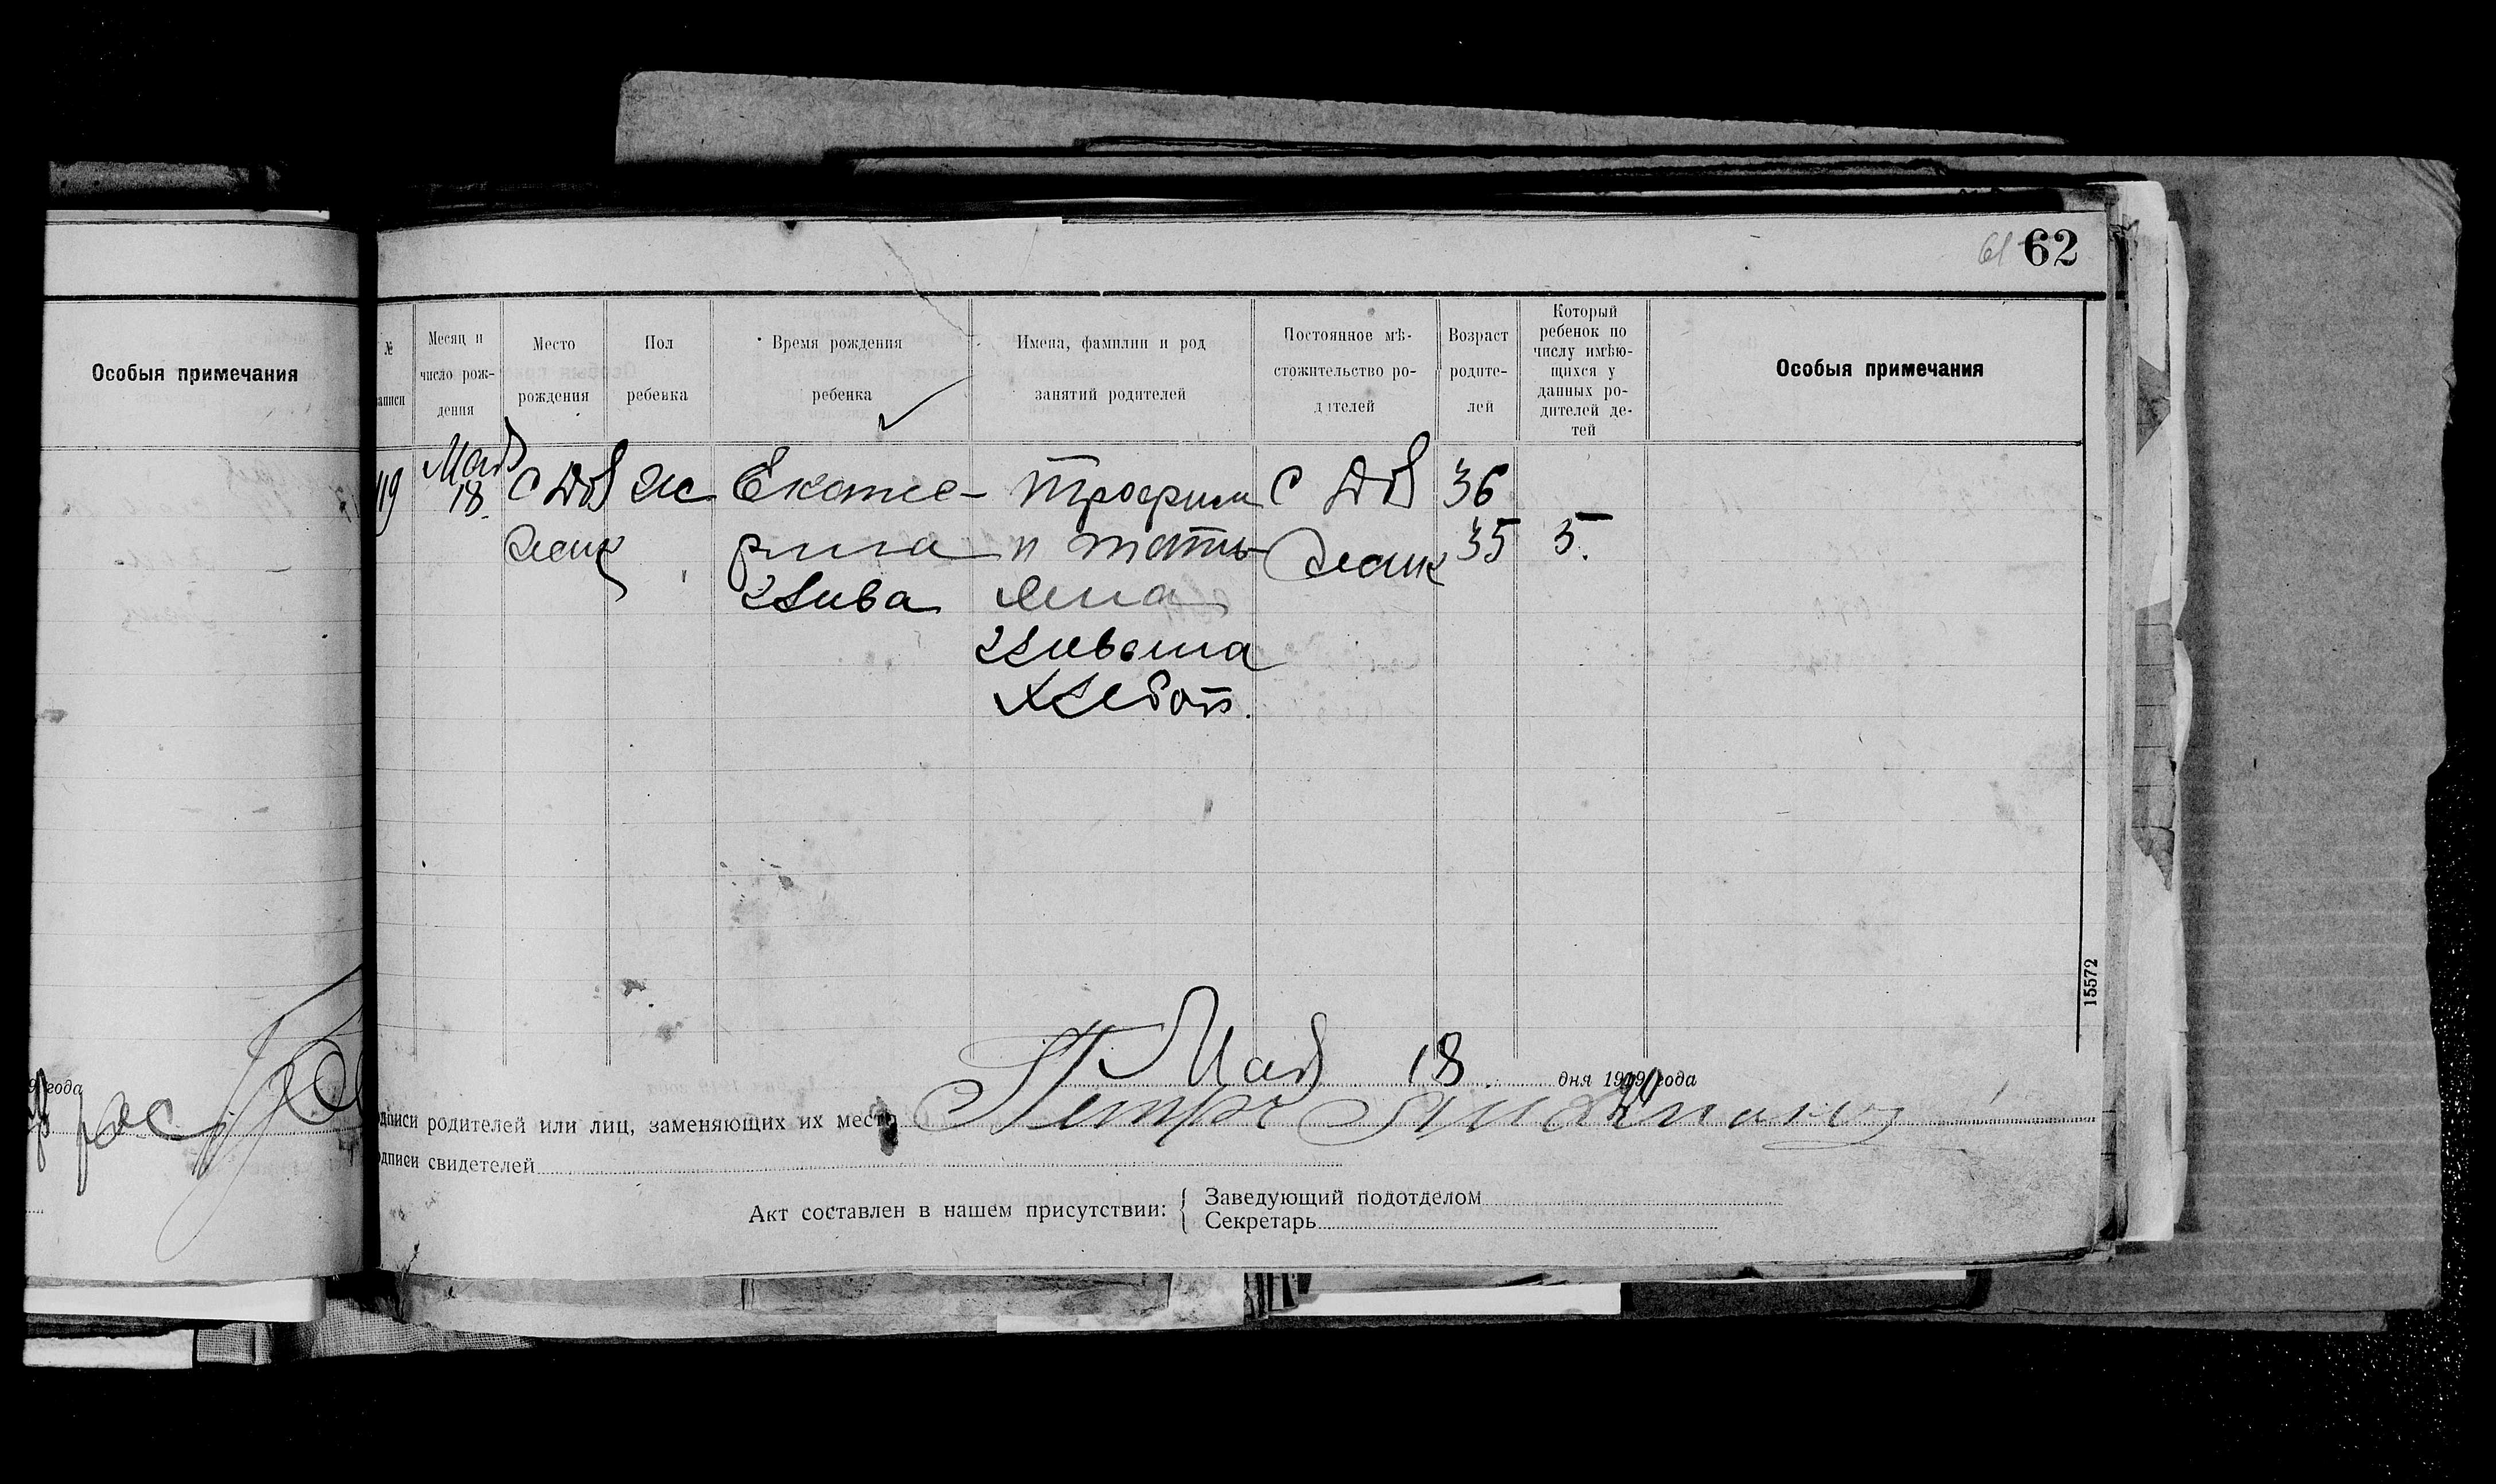 61 62
Особыя примечания
№
аписи
Месяц и
число рож-
дения
Место
рождения
Пол
ребенка
Время рождения
ребенка
Имена, фамилии и род
занятий родителей
Постоянное мѣ-
стожительство ро-
дителей
Возраст
родите-
лей
Который
ребенок по
числу имѣю-
щихся у
данных ро-
дителей де-
тей
Особыя примечания
119 Мая С Дов ж Екате- Трофим С Дов 36
18.
рина и Тать 35 5.
яна
Хлебоп.
15572
Мая 18 дня 1919 года
9 года
дписи родителей или лиц, заменяющих их место Петро
дписи свидетелей
Акт составлен в нашем присутствии: { Заведующий подотделом
Секретарь